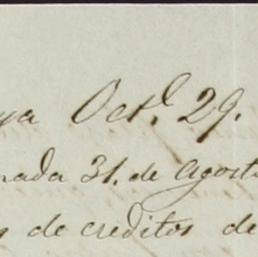 Oct.e 29.
31. de Agosto
de creditos de